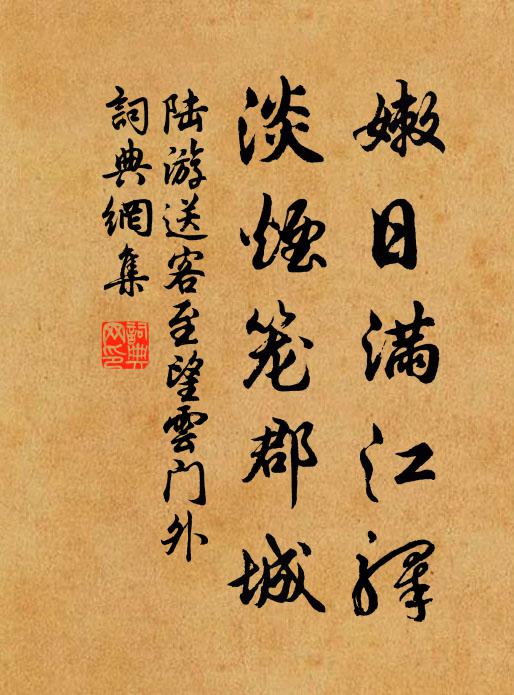 嫩日满江驿
淡烟笼郡城
陆游送客至望雲门外
詞典網集
詞典网印